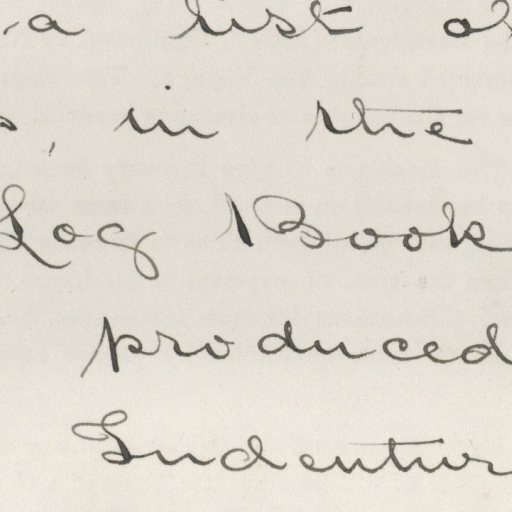 a list of
, in the
Log Book
produced
Indentur